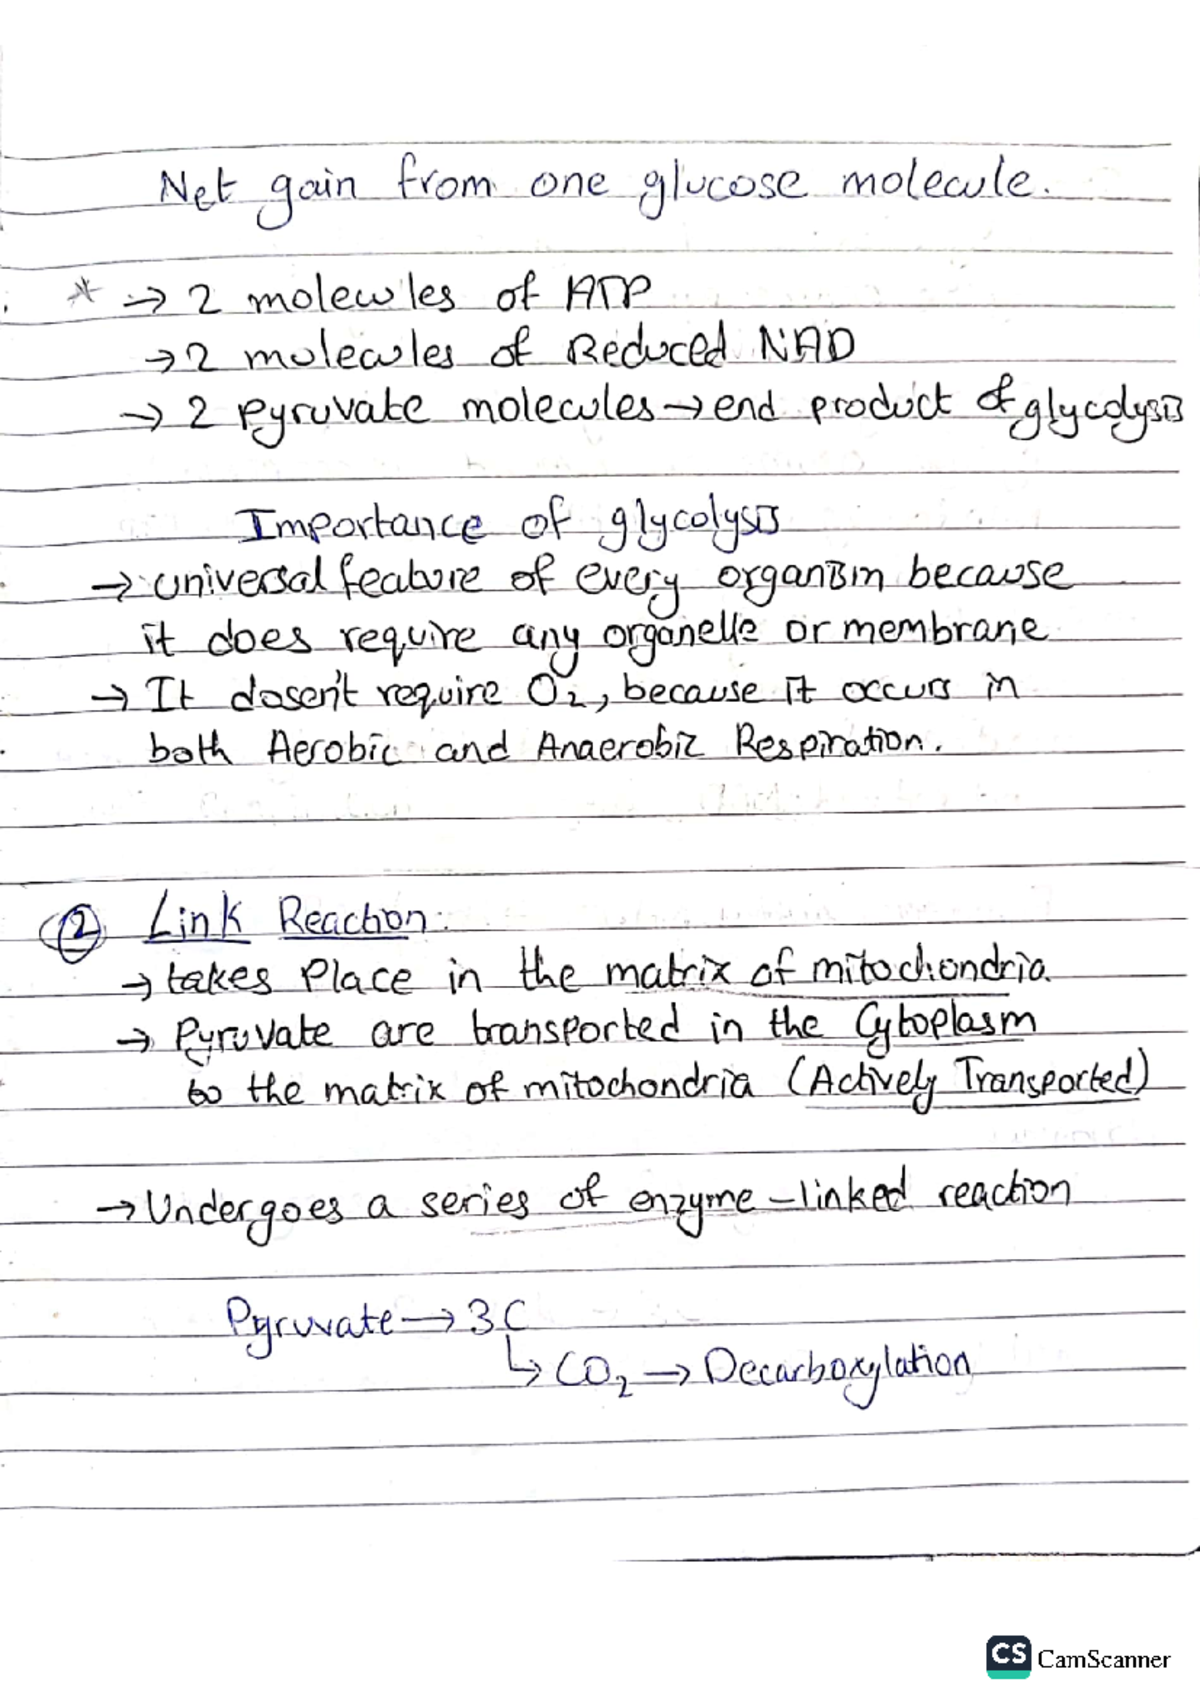 Net gain from one glucose molecule.
* → 2 molecules of ATP
→ 2 molecules of Reduced NAD
→ 2 Pyruvate molecules → end product of glycolysis
Importance of glycolysis
→ universal feature of every organism because
it does require any organelle or membrane
→ It dosen't require O₂, because it occurs in
both Aerobic and Anaerobic Respiration.
② Link Reaction:
→ takes Place in the matrix of mitochondria.
→ Pyruvate are transported in the Cytoplasm
to the matrix of mitochondria (Actively Transported)
→ Undergoes a series of enzyme-linked reaction
Pyruvate → 3C
↳ CO₂ → Decarboxylation
CS CamScanner